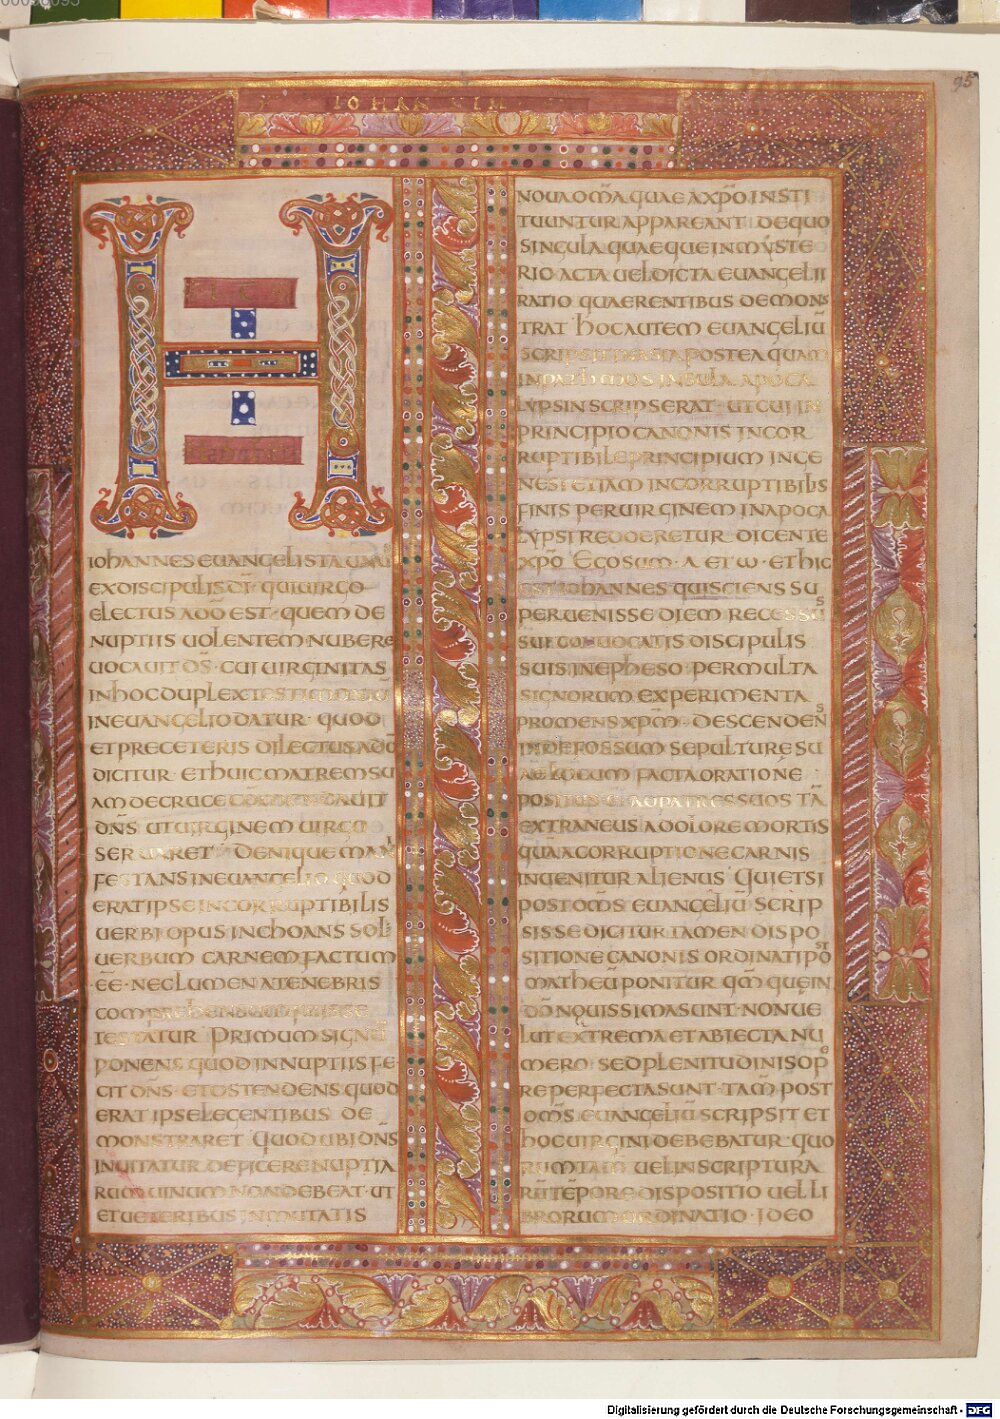 95
IOHANNEM
HIC EST
IOHANNES EUANGELISTA UNUS
EX DISCIPULIS DĪ · QUI UIRGO
ELECTUS A DO EST · QUEM DE
NUPTIIS UOLENTEM NUBERE
UOCAUIT DS̄ · CUI UIRGINITAS
IN HOC DUPLEX TESTIMONIŪ
IN EUANGELIO DATUR · QUOD
ET PRECETERIS DILECTUS A DŌ
DICITUR · ET HUIC MATREM SU
AM DE CRUCE COM̄ENDAUIT
DN̄S UT UIRGINEM UIRGO
SERUARET · DENIQUE MANI
FESTANS IN EUANGELIO QUOD
ERAT IPSE INCORRUPTIBILIS
UERBI OPUS INCHOANS SOLUS
UERBUM CARNEM FACTUM
ĒE · NEC LUMEN A TENEBRIS
COMPREHENSUM FUISSE
TESTATUR PRIMUM SIGNŪ
PONENS QUOD IN NUPTIIS FE
CIT DN̄S · ET OSTENDENS QUOD
ERAT IPSE LEGENTIBUS DE
MONSTRARET QUOD UBI DN̄S
INUITATUR DEFICERE NUPTIA
RUM UINUM NON DEBEAT · UT
ET UETERIBUS INMUTATIS
NOUA OM̄A QUAE A XPŌ INSTI
TUUNTUR APPAREANT DE QUO
SINGULA QUAEQUE IN MYSTE
RIO ACTA UEL DICTA EUANGELII
RATIO QUAERENTIBUS DEMONS
TRAT HOC AUTEM EUANGELIŪ
SCRIPSIT IN ASIA POSTEA QUAM
IN PATHMOS INSULA APOCA
LYPSIN SCRIPSERAT · UT CUI IN
PRINCIPIO CANONIS INCOR
RUPTIBILE PRINCIPIUM IN GE
NESI ETIAM INCORRUPTIBILIS
FINIS PER UIRGINEM IN APOCA
LYPSI REDDERETUR DICENTE
XPŌ EGO SUM · A · ET Ω · ET HIC
EST IOHANNES QUI SCIENS SU
PERUENISSE DIEM RECESSUS
SUI CONUOCATIS DISCIPULIS
SUIS IN EPHESO · PER MULTA
SIGNORUM EXPERIMENTA
PROMENS XPM̄ · DESCENDENS
IN DEFOSSUM SEPULTURE SU
AE LOCUM FACTA ORATIONE
POSITUS EST AD PATRES SUOS TĀ
EXTRANEUS A DOLORE MORTIS
QUĀ A CORRUPTIONE CARNIS
INUENITUR ALIENUS QUI ETSI
POST OM̄S EUANGELIŪ SCRIP
SISSE DICITUR TAMEN DISPO
SITIONE CANONIS ORDINATI POST
MATHEŪ PONITUR QM̄ QUE IN
DN̄O NOUISSIMA SUNT · NON UE
LUT EXTREMA ET ABIECTA NU
MERO · SED PLENITUDINIS OPE
RE PERFECTA SUNT · TAM̄ POST
OM̄S EUANGELIŪ SCRIPSIT ET
HOC UIRGINI DEBEBATUR · QUO
RUM TAM̄ UEL IN SCRIPTURA
RŪ TĒPORE DISPOSITIO UEL LI
BRORUM ORDINATIO · IDEO
Digitalisierung gefördert durch die Deutsche Forschungsgemeinschaft - DFG